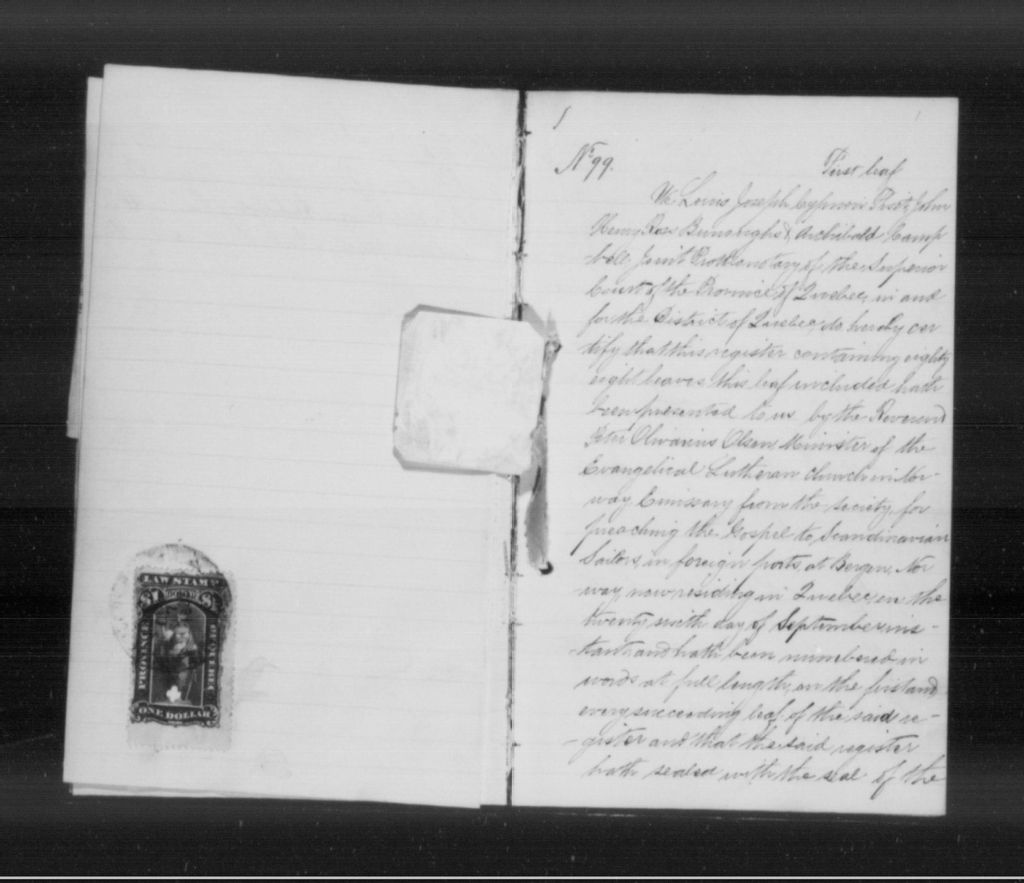 LAW STAMP
$1 $1
PROVINCE OF QUEBEC
ONE DOLLAR
1
No 99.
First leaf
We Louis Joseph Cyprien Fiset, John
Henry Ross Burroughs & Archibald Camp
bell Joint Prothonotary of the Superior
Court of the Province of Quebec, in and
for the District of Quebec, do hereby cer
tify that this register containing eighty
eight leaves this leaf included hath
been presented to us by the Reverend
Olivarius Olsen Minister of the
Evangelical Lutheran Church in Nor-
way Emissary from the society for
preaching the Gospel to Scandinavian
Sailors in foreign ports, at Bergen, Nor
way, now residing in Quebec, on the
twenty sixth day of September ins-
-tant and hath been numbered in
words at full length, on the first and
every succeeding leaf of the said re-
-gister and that the said register
hath sealed with the seal of the